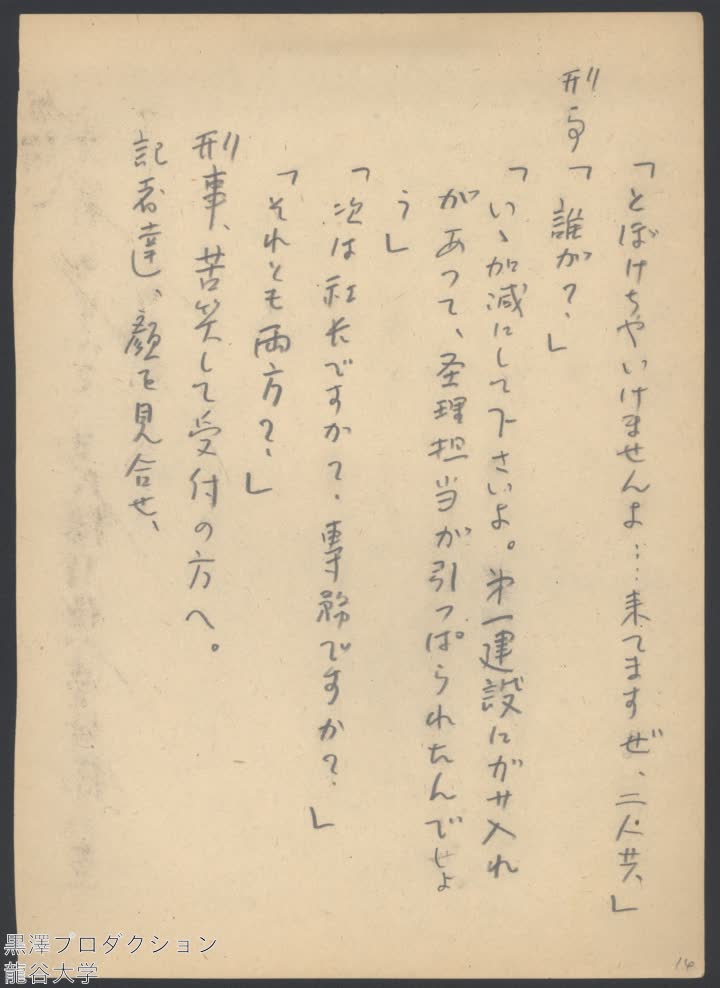 「とぼけちゃいけませんよ…来てますぜ、二人共、」
刑事「誰が？」
「いゝ加減にして下さいよ。第一建設にガサ入れ
があって、圣理担当が引っぱられたんでしょ
う」
「次は社長ですか？専務ですか？」
「それとも両方？」
刑事、苦笑して受付の方へ。
記者達、顔を見合せ、
14
黒澤プロダクション
龍谷大学